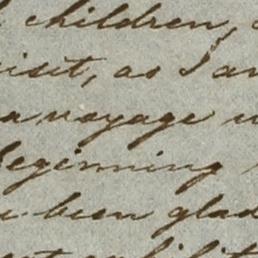 children,
visit, as I am
a voyage
beginning
been glad